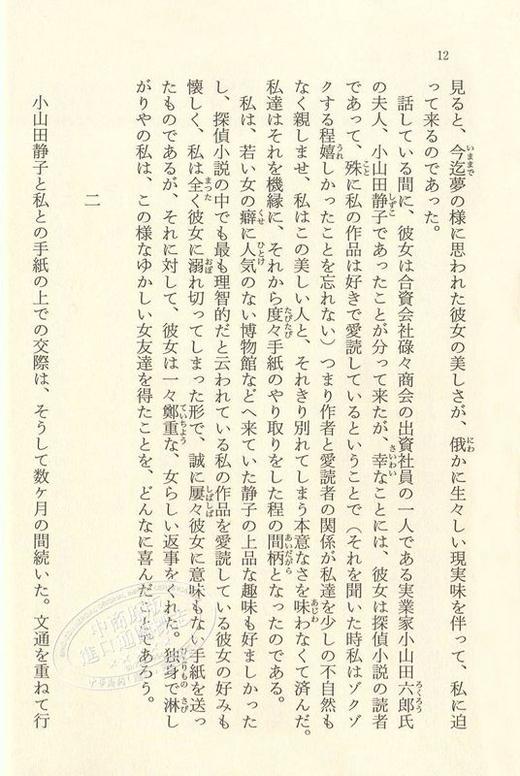 12
見ると、今迄夢の様に思われた彼女の美しさが、俄かに生々しい現実味を伴って、私に迫
って来るのであった。
話している間に、彼女は合資会社碌々商会の出資社員の一人である実業家小山田六郎氏
の夫人、小山田静子であったことが分って来たが、幸なことには、彼女は探偵小説の読者
であって、殊に私の作品は好きで愛読しているということで（それを聞いた時私はゾクゾ
クする程嬉しかったことを忘れない）つまり作者と愛読者の関係が私達を少しの不自然も
なく親しませ、私はこの美しい人と、それきり別れてしまう本意なさを味わなくて済んだ。
私達はそれを機縁に、それから度々手紙のやり取りをした程の間柄となったのである。
私は、若い女の癖に人気のない博物館などへ来ていた静子の上品な趣味も好ましかった
し、探偵小説の中でも最も理智的だと云われている私の作品を愛読している彼女の好みも
懐しく、私は全く彼女に溺れ切ってしまった形で、誠に屡々彼女に意味もない手紙を送っ
たものであるが、それに対して、彼女は一々鄭重な、女らしい返事をくれた。独身で淋し
がりやの私は、この様なゆかしい女友達を得たことを、どんなに喜んだことであろう。
二
小山田静子と私との手紙の上での交際は、そうして数ヶ月の間続いた。文通を重ねて行